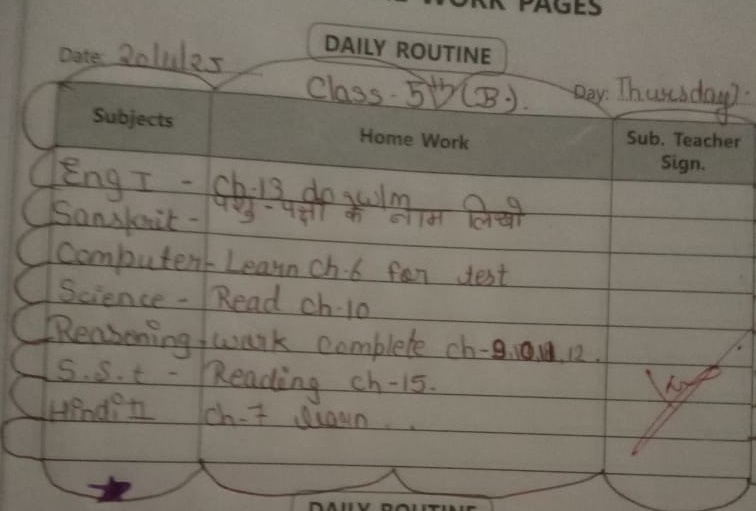 WORK PAGES
DAILY ROUTINE
Date: 20/11/25
Class - 5th (B.).
Day: Thursday
Subjects
Home Work
Sub. Teacher
Sign.
Eng I - Ch-13 do w/m
Sanskrit - पशु - पक्षी के नाम लिखो
Computer - Learn Ch-6 for test
Science - Read ch-10
Reasoning - work complete ch-9,10,11,12.
S.S.t - Reading ch-15.
Hindi II ch-7 learn..
DAILY ROUTINE